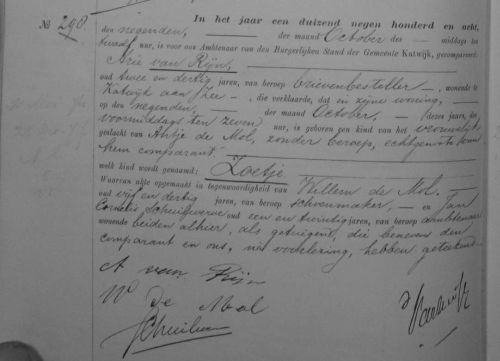 No 290.
In het jaar een duizend negen honderd en acht,
den negenden, der maand October des middags te
uur, is voor ons Ambtenaar van den Burgerlijken Stand der Gemeente Katwijk, gecompareerd:
Arie van Rijn,
oud twee en dertig jaren, van beroep brievenbesteller, wonende te
Katwijk aan Zee, die verklaarde, dat in zijne woning,
op den negenden, der maand October, dezes jaars, des
voormiddags ten zeven uur, is geboren een kind van het vrouwelijk
geslacht van Abtje de Mol, zonder beroep, echtgenoote van
hem comparant.
welk kind wordt genaamd: Zoetje.
Waarvan akte opgemaakt in tegenwoordigheid van Willem de Mol,
oud vijf en dertig jaren, van beroep schoenmaker, en Jan
Cornelis oud een en twintig jaren, van beroep ambtenaar
wonende beiden alhier, als getuigen, die benevens den
comparant en ons, na voorlezing, hebben geteekend.
A van Rijn
W de Mol